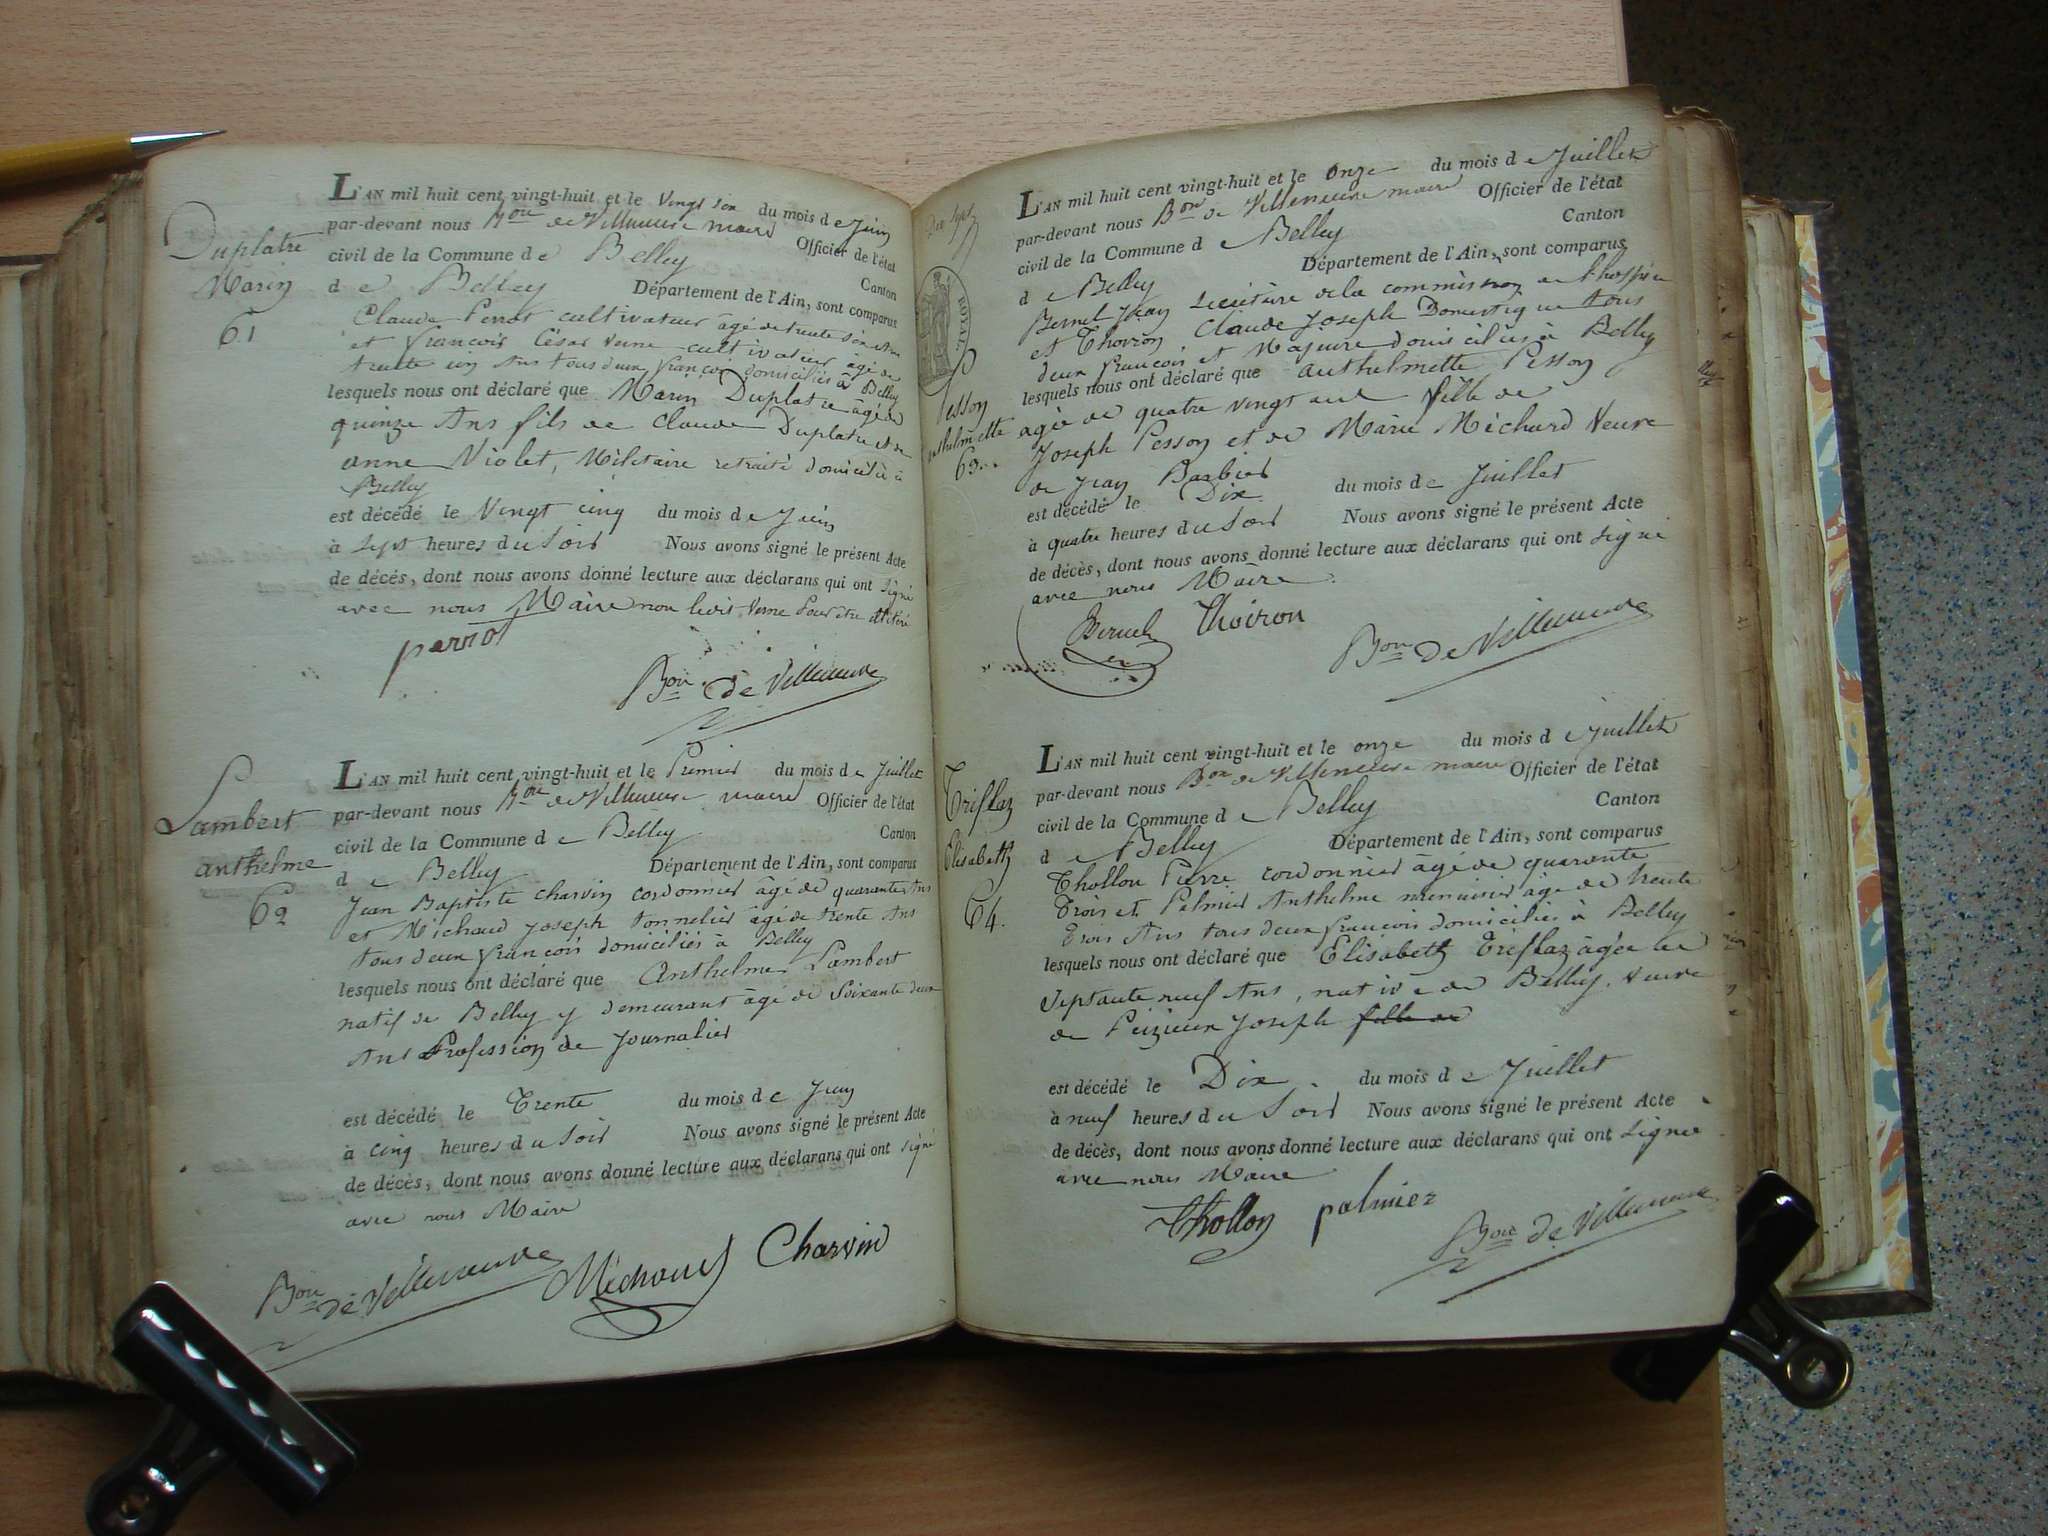 Duplatre
Marin
61
L'AN mil huit cent vingt-huit et le Vingt six du mois de Juin
par-devant nous Bon de Villeneuve maire Officier de l'état
civil de la Commune de Belley Canton
de Belley Département de l'Ain, sont comparus
Claude Perrot cultivateur âgé de trente six ans
et françois César Verne cultivateur âgé de
trente cinq Ans tous deux françois domiciliés à Belley
lesquels nous ont déclaré que Marin Duplatre âgé de
quinze Ans fils de Claude Duplatre et de
anne Violet, Militaire retraité domicilié à
Belley
est décédé le Vingt cinq du mois de Juin
à sept heures du Soir Nous avons signé le présent Acte
de décés, dont nous avons donné lecture aux déclarans qui ont signé
avec nous Maire non ledit Verne Pour être illitéré
perrot
Bon de Villeneuve
Lambert
anthelme
62
L'AN mil huit cent vingt-huit et le Premier du mois de Juillet
par-devant nous Bon de Villeneuve maire Officier de l'état
civil de la Commune de Belley Canton
de Belley Département de l'Ain, sont comparus
Jean Baptiste Charvin cordonnier âgé de quarante Ans
et Michaud Joseph tonnelier âgé de trente Ans
tous deux françois domiciliés à Belley
lesquels nous ont déclaré que Anthelme Lambert
natif de Belley y demeurant âgé de Soixante deux
Ans Profession de Journalier
est décédé le Trente du mois de Juin
à cinq heures du Soir Nous avons signé le présent Acte
de décés, dont nous avons donné lecture aux déclarans qui ont signé
avec nous Maire
Bon de Villeneuve Michaud Charvin
Dix Sept
ROYAL
Pesson
Anthelmette
63
L'AN mil huit cent vingt-huit et le Onze du mois de Juillet
par-devant nous Bon de Villeneuve maire Officier de l'état
civil de la Commune de Belley Canton
de Belley Département de l'Ain, sont comparus
Bernel Jean Secrétaire de la commission de l'hospice
et Thoiron Claude Joseph Domestique tous
deux françois et Majeurs domiciliés à Belley
lesquels nous ont déclaré que Anthelmette Pesson
agée de quatre vingt ans fille de
Joseph Pesson et de Marie Michard Veuve
de Jean Barbier
est décédé le Dix du mois de Juillet
à quatre heures du Soir Nous avons signé le présent Acte
de décés, dont nous avons donné lecture aux déclarans qui ont signé
avec nous Maire
Bernel Thoiron
Bon de Villeneuve
Triflaz
Elisabeth
64.
L'AN mil huit cent vingt-huit et le onze du mois de Juillet
par-devant nous Bon de Villeneuve maire Officier de l'état
civil de la Commune de Belley Canton
de Belley Département de l'Ain, sont comparus
Thollon Pierre cordonnier âgé de quarante
Trois et Palmier Anthelme menuisier âgé de trente
trois Ans tous deux françois domiciliés à Belley
lesquels nous ont déclaré que Elisabeth Triflaz âgée de
Septante neuf Ans, native de Belley, veuve
de Peizieux Joseph fille de
est décédé le Dix du mois de Juillet
à neuf heures du Soir Nous avons signé le présent Acte
de décés, dont nous avons donné lecture aux déclarans qui ont signé
avec nous Maire
Thollon palmier
Bon de Villeneuve